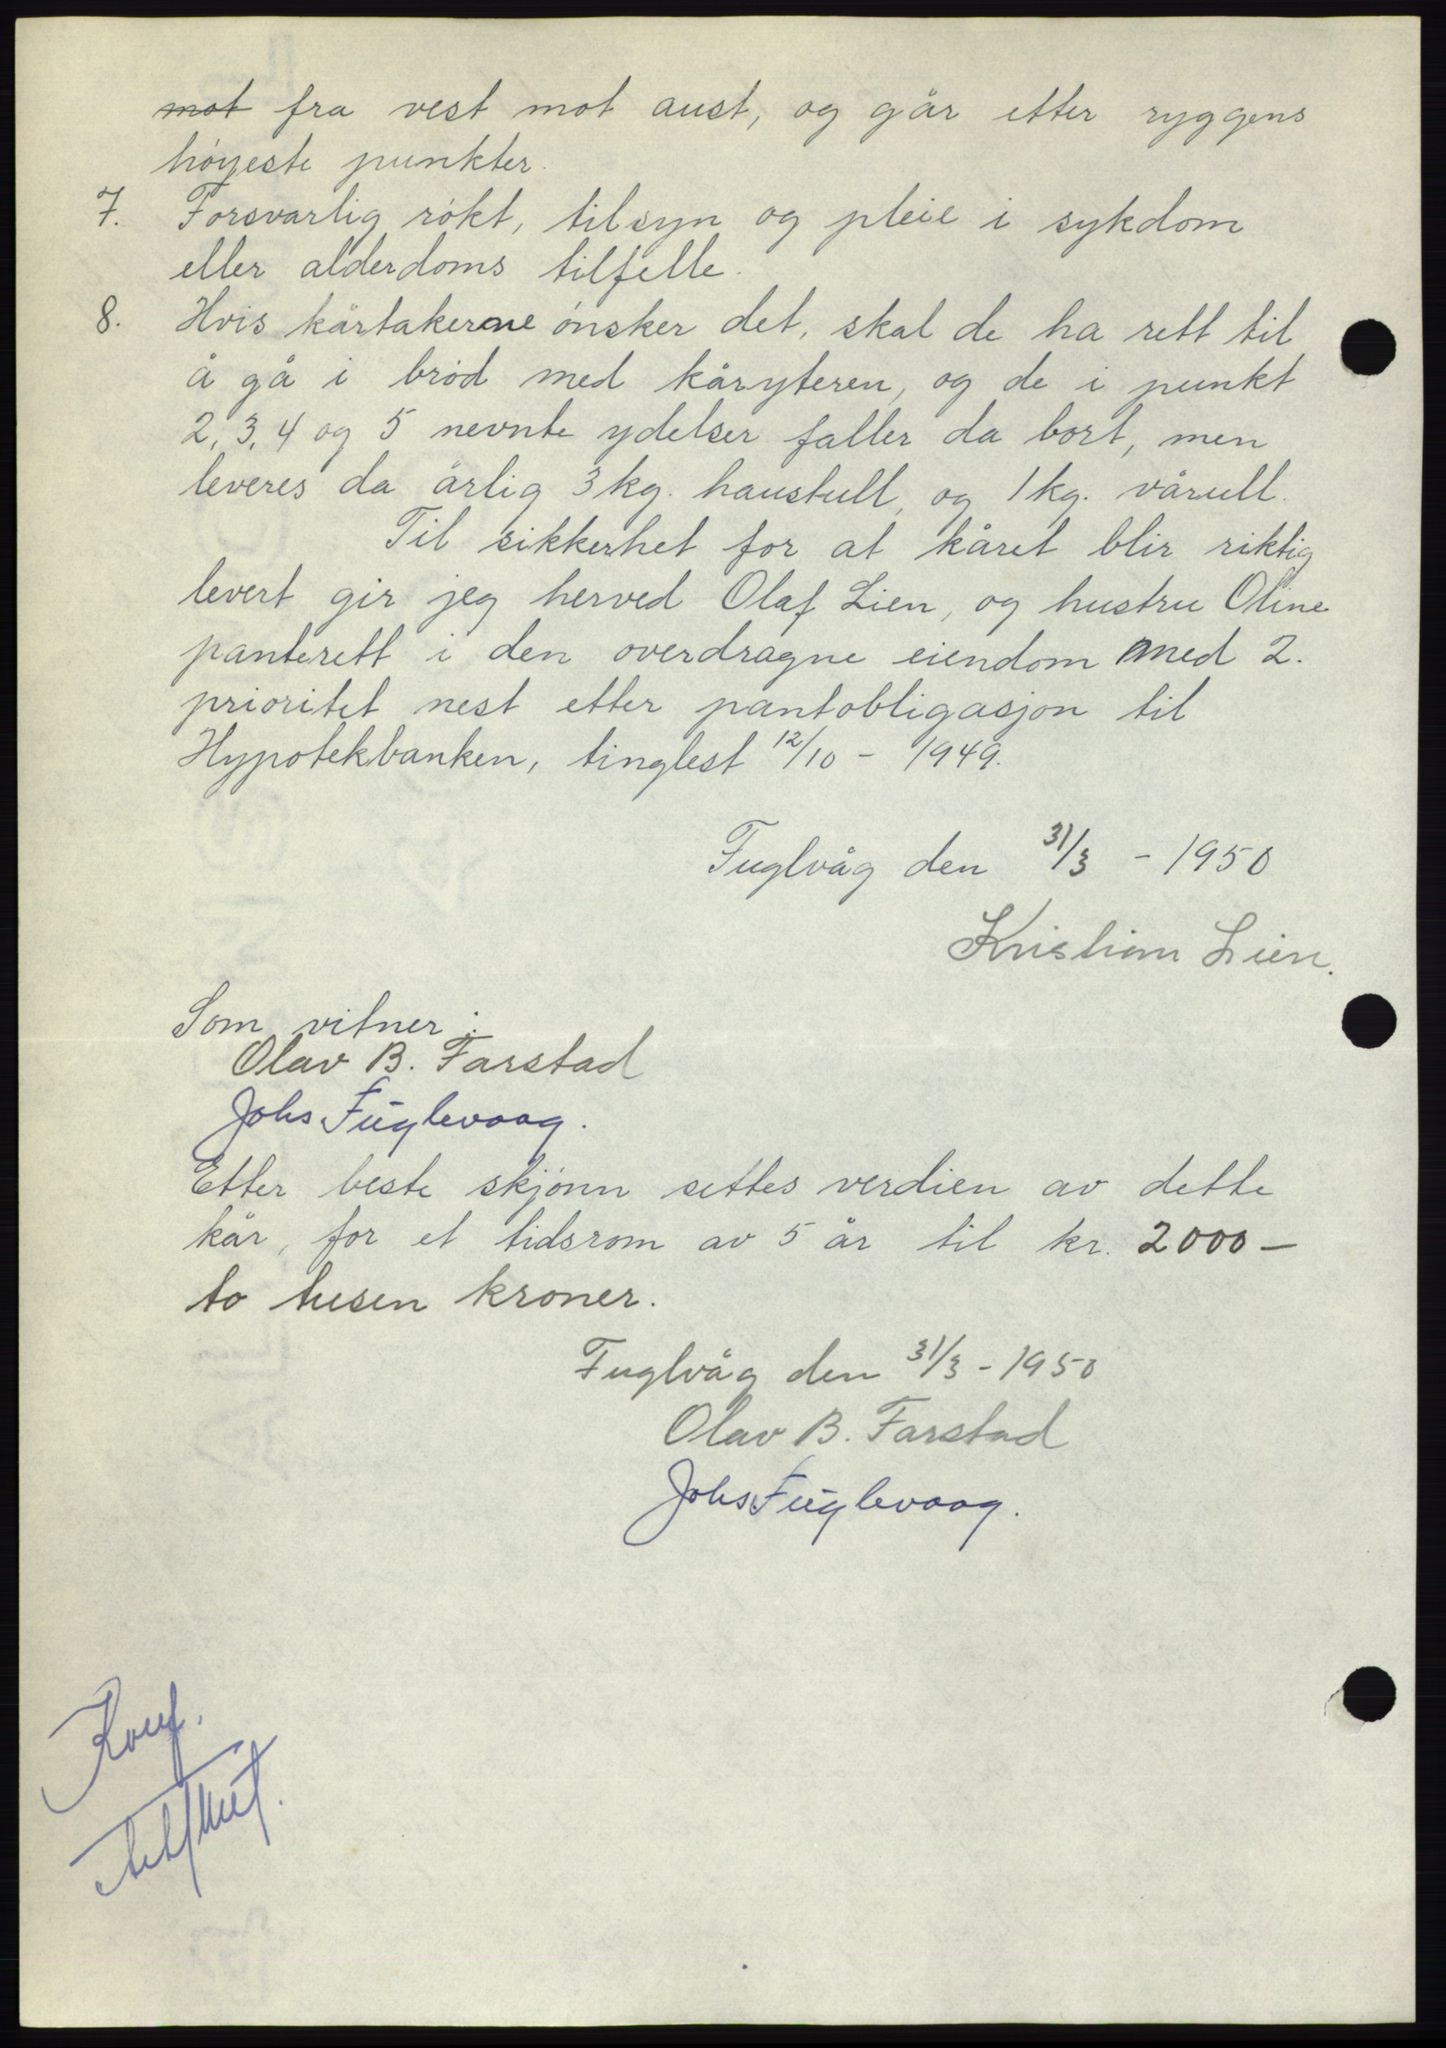 mot fra vest mot aust, og går etter ryggens
höyeste punkter.
7. Forsvarlig rökt, tilsyn og pleie i sykdom
eller alderdoms tilfelle.
8. Hvis kårtakerne önsker det, skal de ha rett til
å gå i bröd med kåryteren, og de i punkt
2, 3, 4 og 5 nevnte ydelser faller da bort, men
leveres da årlig 3 kg. haustull, og 1 kg. vårull.
Til sikkerhet for at kåret blir riktig
levert gir jeg herved Olaf Lien, og hustru Oline
panterett i den overdragne eiendom med 2.
prioritet nest etter pantobligasjon til
Hypotekbanken, tinglest 12/10 - 1949.
Fuglvåg den 31/3 - 1950
Kristian Lien.
Som vitner:
Olav B. Farstad
Johs Fuglevaag.
Etter beste skjönn settes verdien av dette
kår, for et tidsrom av 5 år til kr. 2000 –
to tusen kroner.
Fuglvåg den 31/3 - 1950
Olav B. Farstad
Johs Fuglevaag.
Konf.